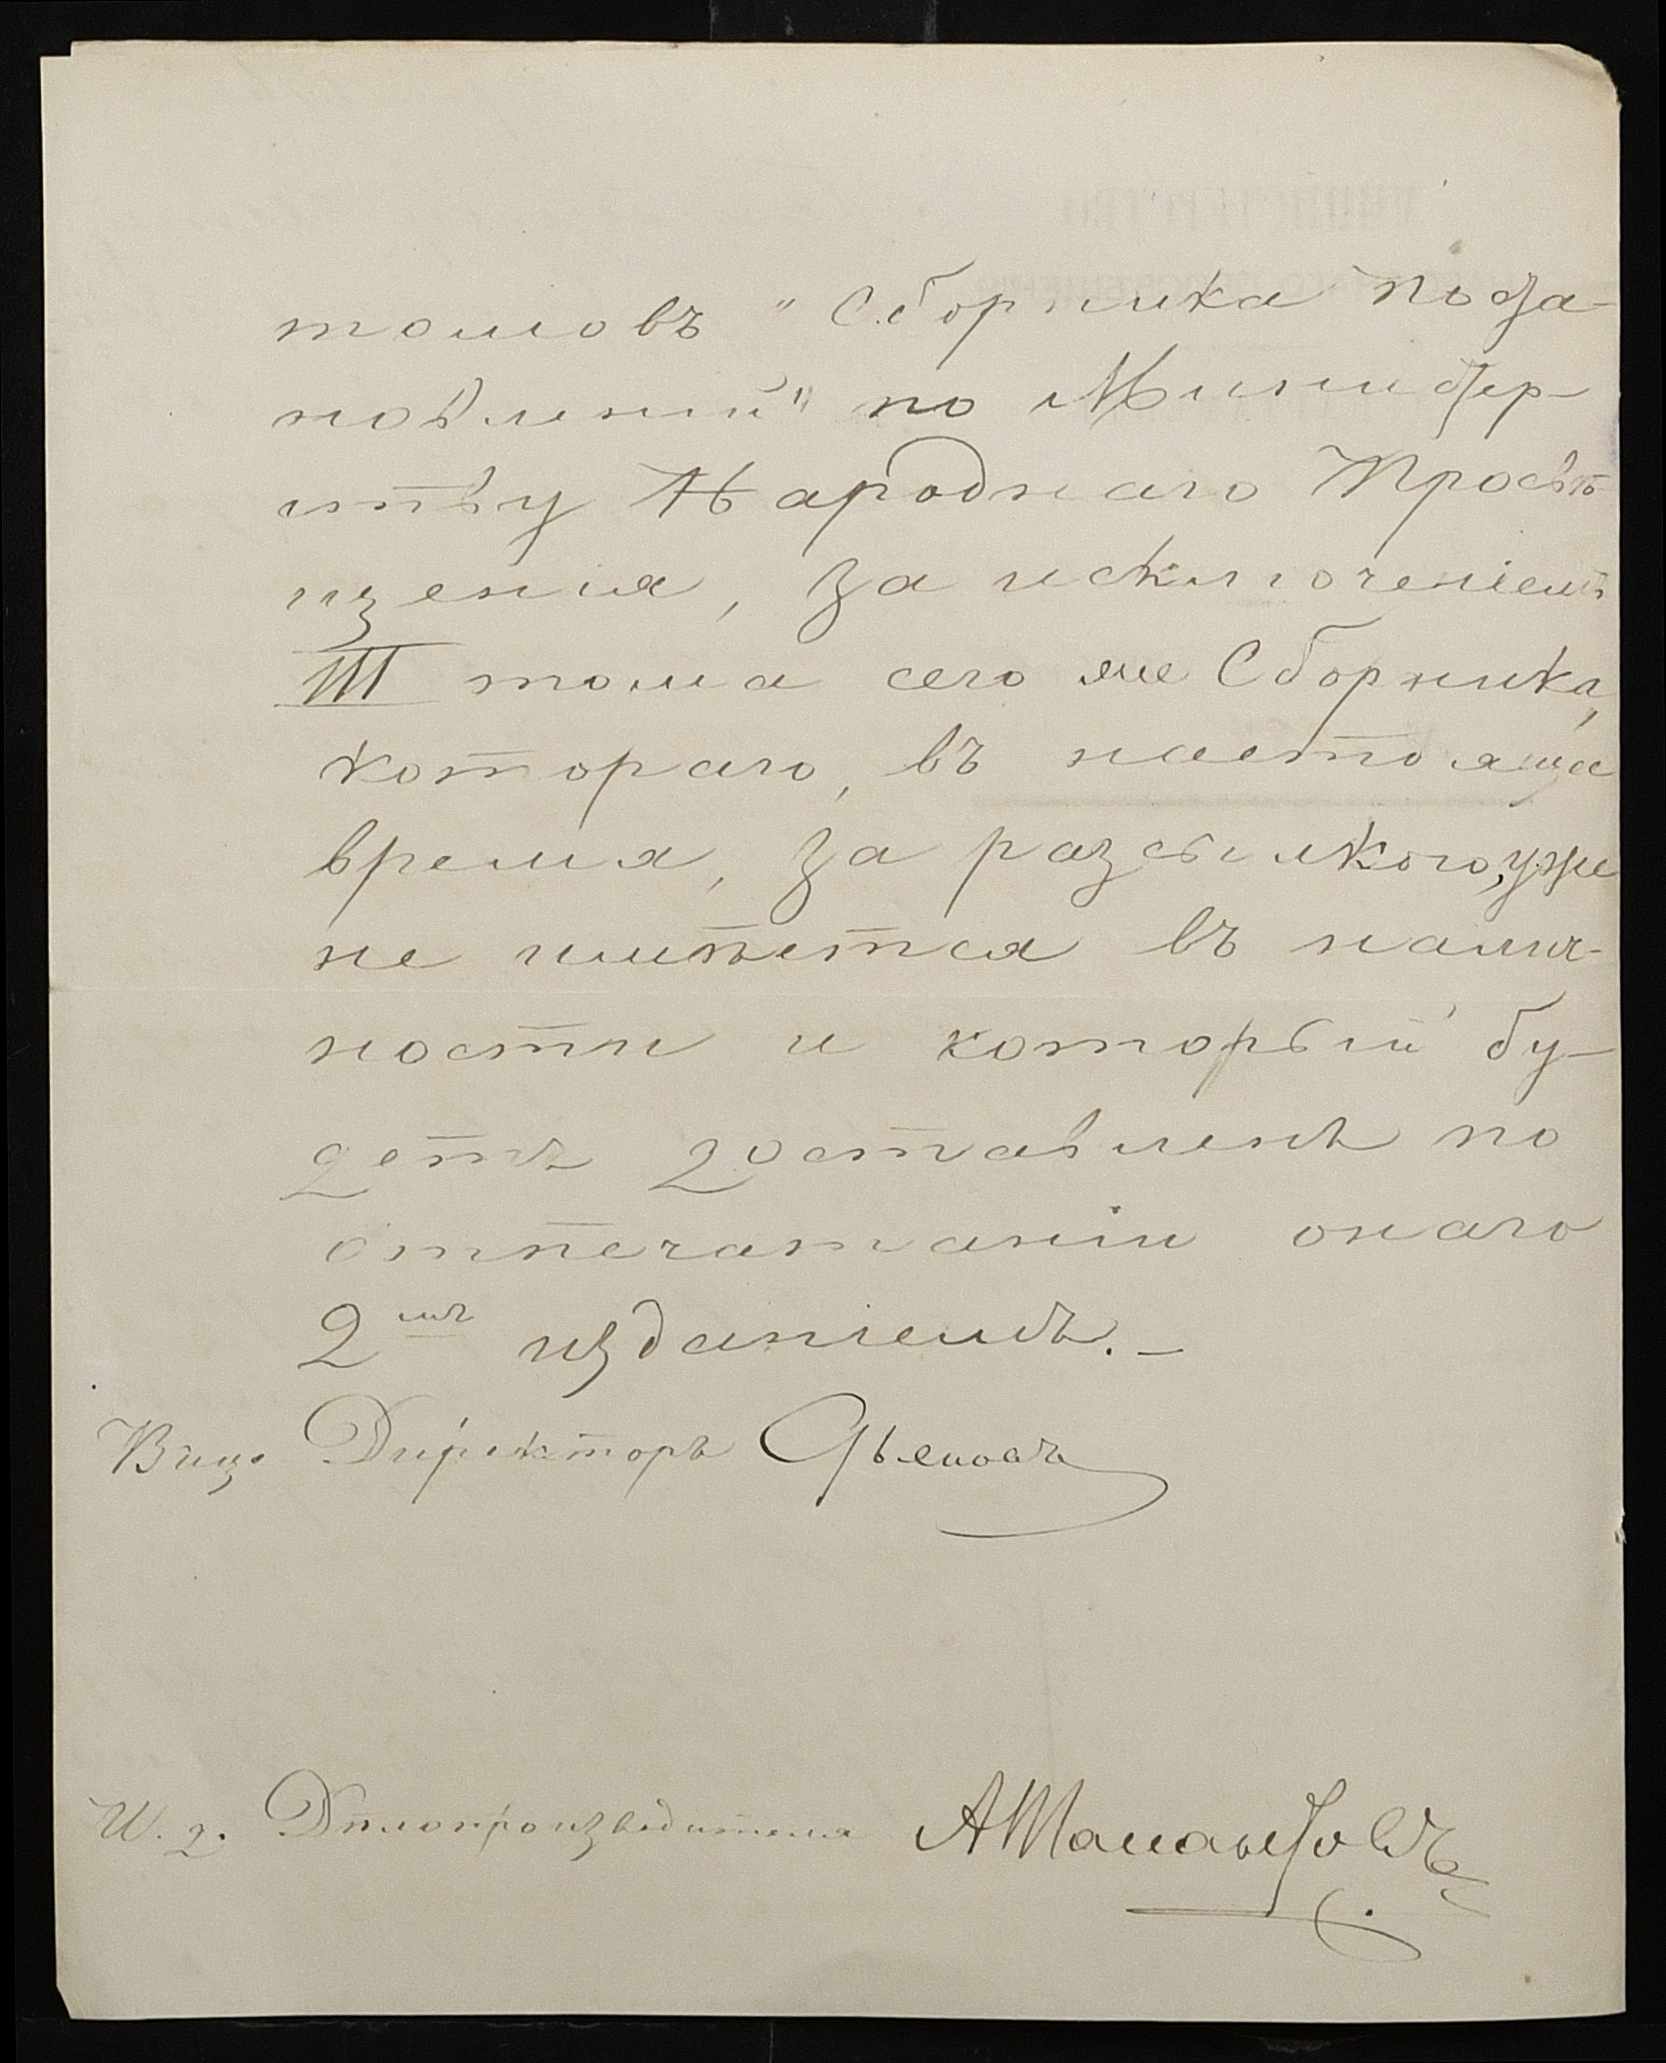 томовъ "Сборника поста-
новленій" по Министер-
ству Народнаго Просвѣ
щенія, за исключеніемъ
III тома сего же Сборника,
котораго, въ настоящее
время, за разсылкою, уже
не имѣется въ налич-
ности и который бу-
детъ доставленъ по
отпечатаніи онаго
2мъ изданіемъ.—
Вице Директоръ
И. д. Дѣлопроизводителя